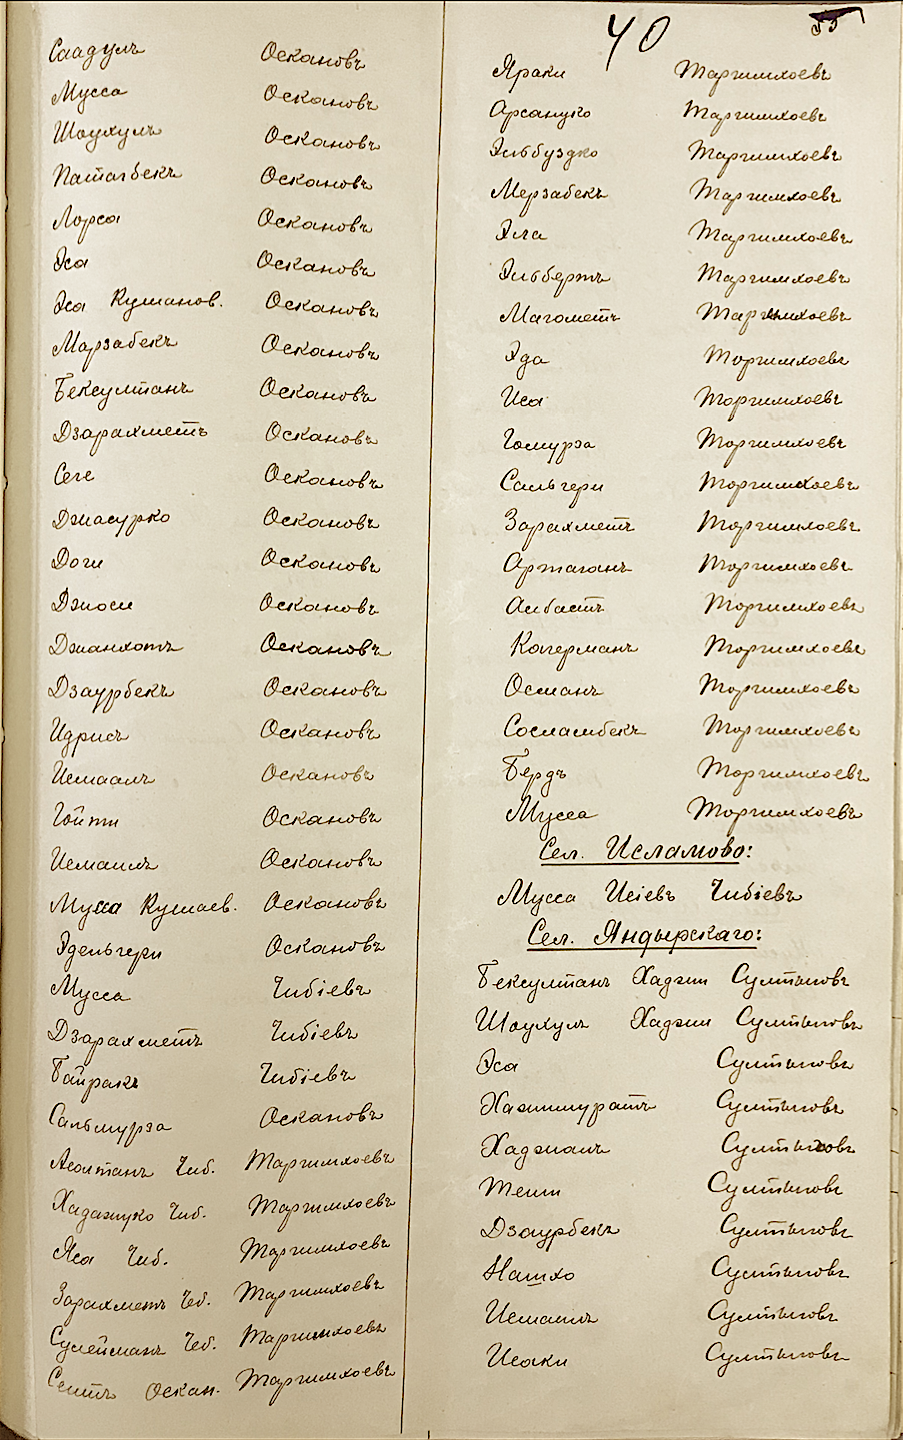 40
55
Саадулъ Оскановъ
Мусса Оскановъ
Шаухулъ Оскановъ
Патагбекъ Оскановъ
Лорса Оскановъ
Эса Оскановъ
Эса Кушанов. Оскановъ
Марзабекъ Оскановъ
Бексултанъ Оскановъ
Дзарахметъ Оскановъ
Сеге Оскановъ
Джасурко Оскановъ
Доги Оскановъ
Дзиоси Оскановъ
Джанхотъ Оскановъ
Дзаурбекъ Оскановъ
Идрисъ Оскановъ
Исмаалъ Оскановъ
Гойти Оскановъ
Исмаилъ Оскановъ
Мусса Кушаев. Оскановъ
Эдельгери Оскановъ
Мусса Чибіевъ
Дзарахметъ Чибіевъ
Байракъ Чибіевъ
Сальмурза Оскановъ
Асолтанъ Чиб. Таргимхоевъ
Хаджуко Чиб. Таргимхоевъ
Яса Чиб. Таргимхоевъ
Зарахметъ Чеб. Таргимхоевъ
Сулейманъ Чеб. Таргимхоевъ
Сеитъ Оскан. Таргимхоевъ
Яраки Таргимхоевъ
Арсануко Таргимхоевъ
Эльбуздко Таргимхоевъ
Мерзабекъ Таргимхоевъ
Эла Таргимхоевъ
Эльбертъ Таргимхоевъ
Магометъ Таргимхоевъ
Эда Торгимхоевъ
Иса Торгимхоевъ
Гомурза Торгимхоевъ
Сальгери Торгимхоевъ
Зарахметъ Торгимхоевъ
Артаганъ Торгимхоевъ
Асбастъ Торгимхоевъ
Когерманъ Торгимхоевъ
Османъ Торгимхоевъ
Сосламбекъ Торгимхоевъ
Бердъ Торгимхоевъ
Мусса Торгимхоевъ
Сел. Исламово:
Мусса Исіевъ Чибіевъ
Сел. Яндырскаго:
Бексултанъ Хаджи Султыговъ
Шаухулъ Хаджи Султыговъ
Эса Султыговъ
Хажимуратъ Султыговъ
Хаджалъ Султыговъ
Теши Султыговъ
Дзаурбекъ Султыговъ
Нашхо Султыговъ
Исмаилъ Султыговъ
Исаки Султыговъ